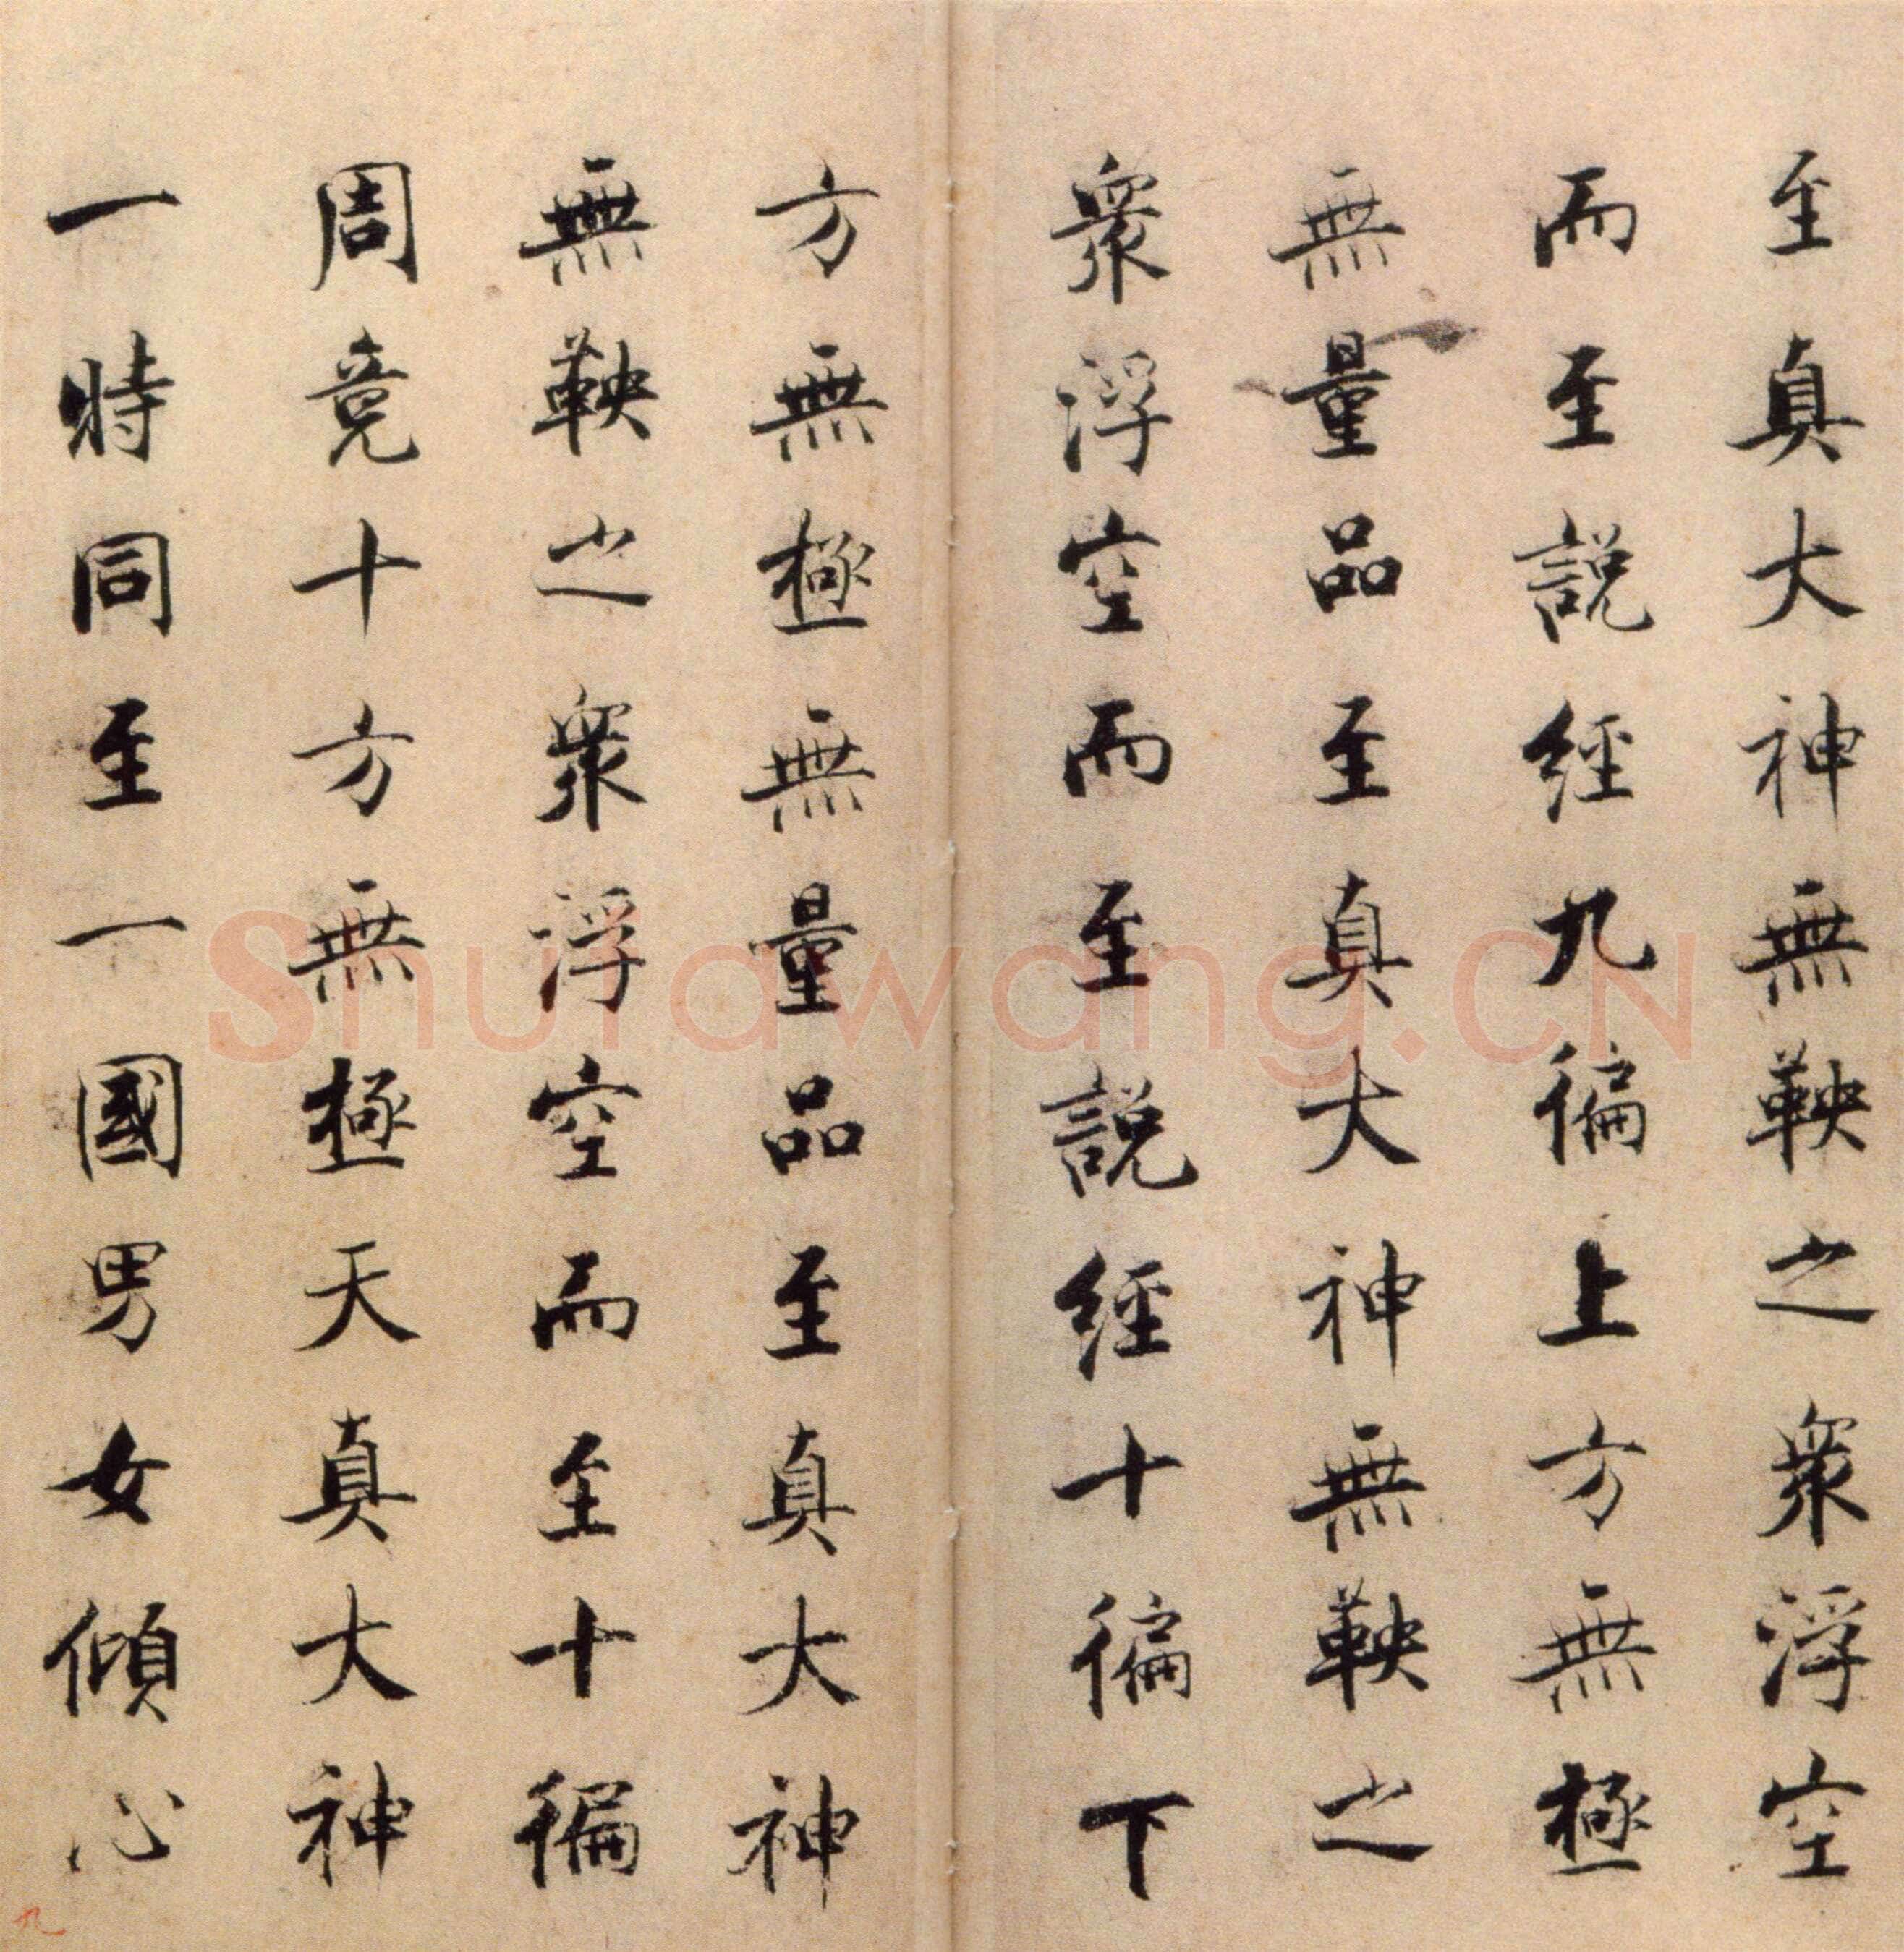 至真大神無鞅之衆浮空
而至說經九徧上方無極
無量品至真大神無鞅之
衆浮空而至說經十徧下
方無極無量品至真大神
無鞅之衆浮空而至十徧
周竟十方無極天真大神
一時同至一國男女傾心
九
Shufawang.CN